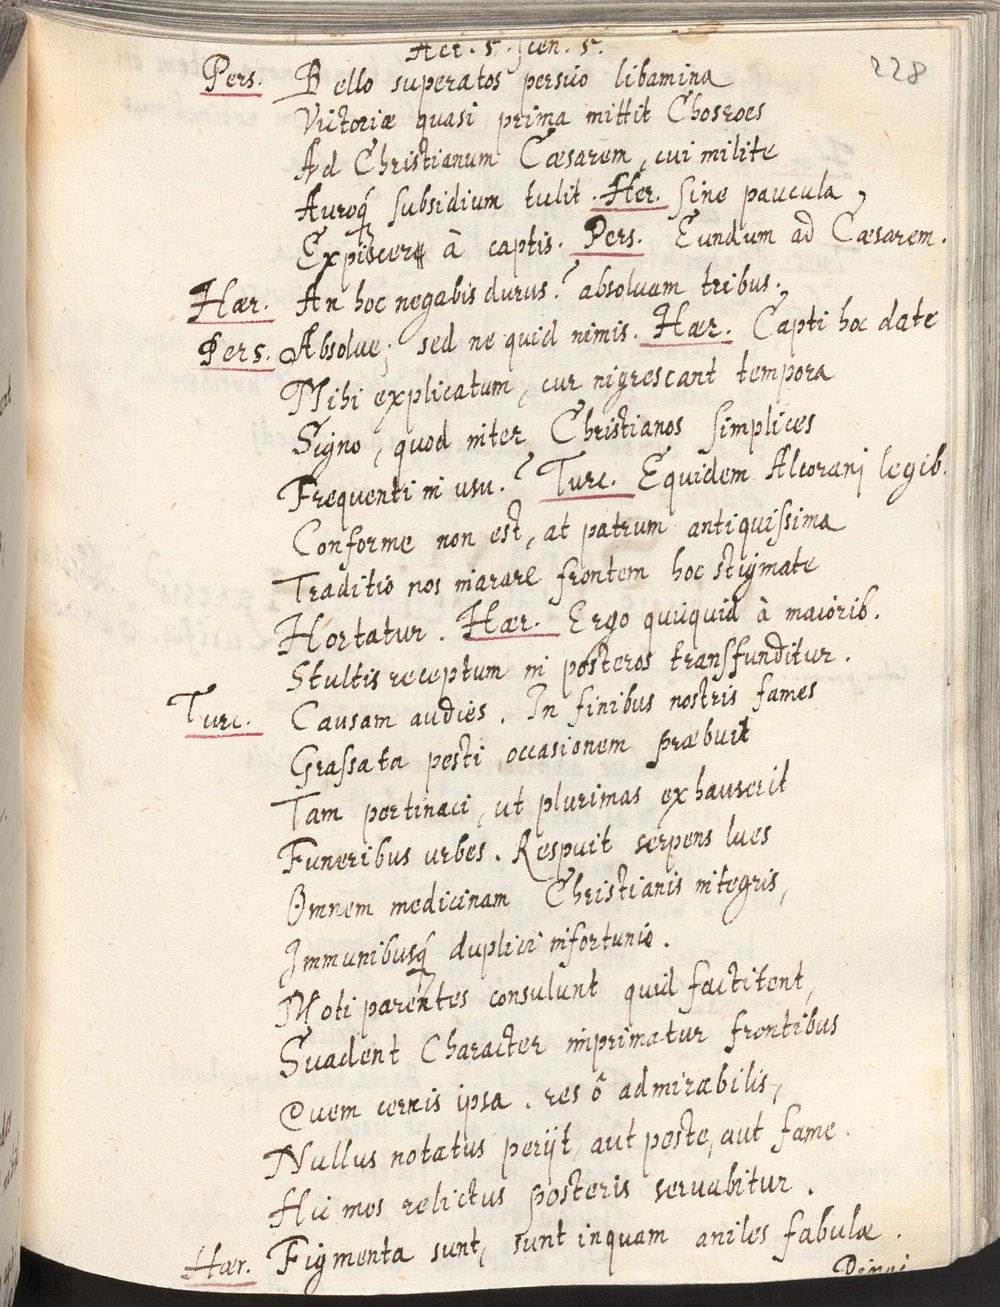 Act. 5. scen. 5.
228
Pers. Bello superatos persico libamina
Victoriæ quasi prima mittit Chosroes
Ad Christianum Cæsarem, cui milite
Auroq; subsidium tulit. Hær. sine paucula
Expiscer à captis. Pers. Eundum ad Cæsarem.
Hær. An hoc negabis durus? absoluam tribus.
Pers. Absolue; sed ne quid nimis. Hær. Capti hoc date
Mihi explicatum, cur nigrescant tempora
Signo, quod inter Christianos simplices
Frequenti in usu? Turc. Equidem Alcorani legib.
Conforme non est, at patrum antiquissima
Traditio nos frontem hoc stigmate
Hortatur. Hær. Ergo quicquid à maiorib.
Stultis receptum in posteros transfunditur.
Turc. Causam audies. In finibus nostris fames
Grassata pesti occasionem præbuit
Tam pertinaci, ut plurimas exhauserit
Funeribus urbes. Respuit serpens lues
Omnem medicinam Christianis integris,
Immunibusq; duplici infortunio.
Moti parentes consulunt quid factitent,
Suadent Character imprimatur frontibus
Quem cernis ipsa. res ô admirabilis,
Nullus notatus perijt, aut peste, aut fame.
Hic mos relictus posteris seruabitur.
Hær. Figmenta sunt, sunt inquam aniles fabulæ.